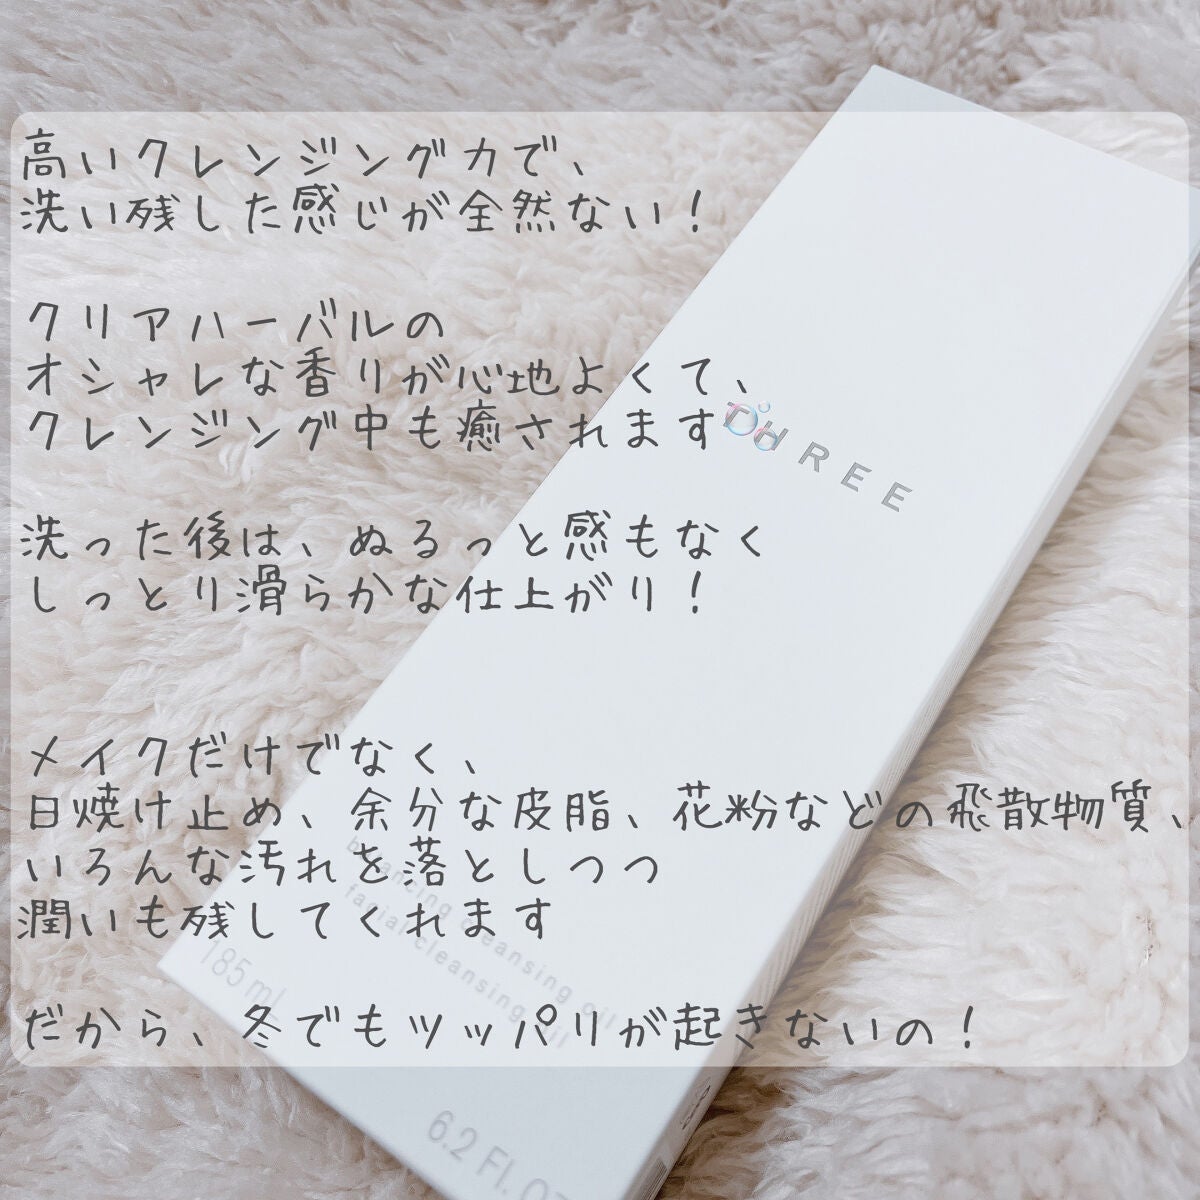 高いクレンジング力で、
洗い残した感じが全然ない！
クリアハーバルの
オシャレな香りが心地よくて、
クレンジング中も癒されます
THREE
洗った後は、ぬるっと感もなく
しっとり滑らかな仕上がり！
メイクだけでなく、
日焼け止め、余分な皮脂、花粉などの飛散物質、
いろんな汚れを落としつつ
潤いも残してくれます
balancing cleansing oil
facial cleansing oil
185 ml
だから、冬でもツッパリが起きないの！
6.2 Fl. OZ